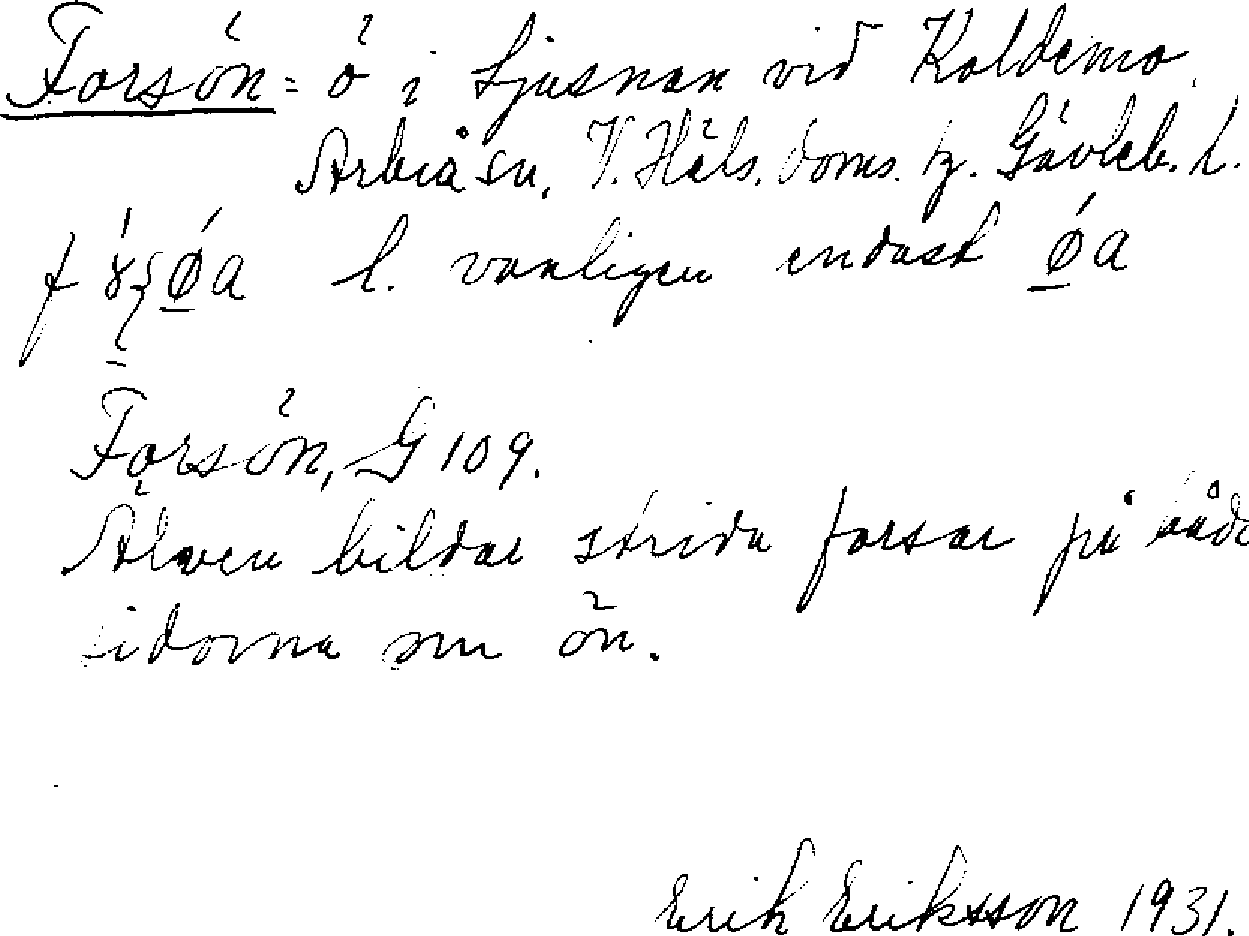 Forsön = ö i Ljusnan vid Koldemo.
Arbrå sn, V. Häls. doms. Gävleb. l.
l. vanligen endast ǿ̱a
Forsön, G 109.
Älven bildar strida forsar på båda
sidorna om ön.
Erik Eriksson 1931.